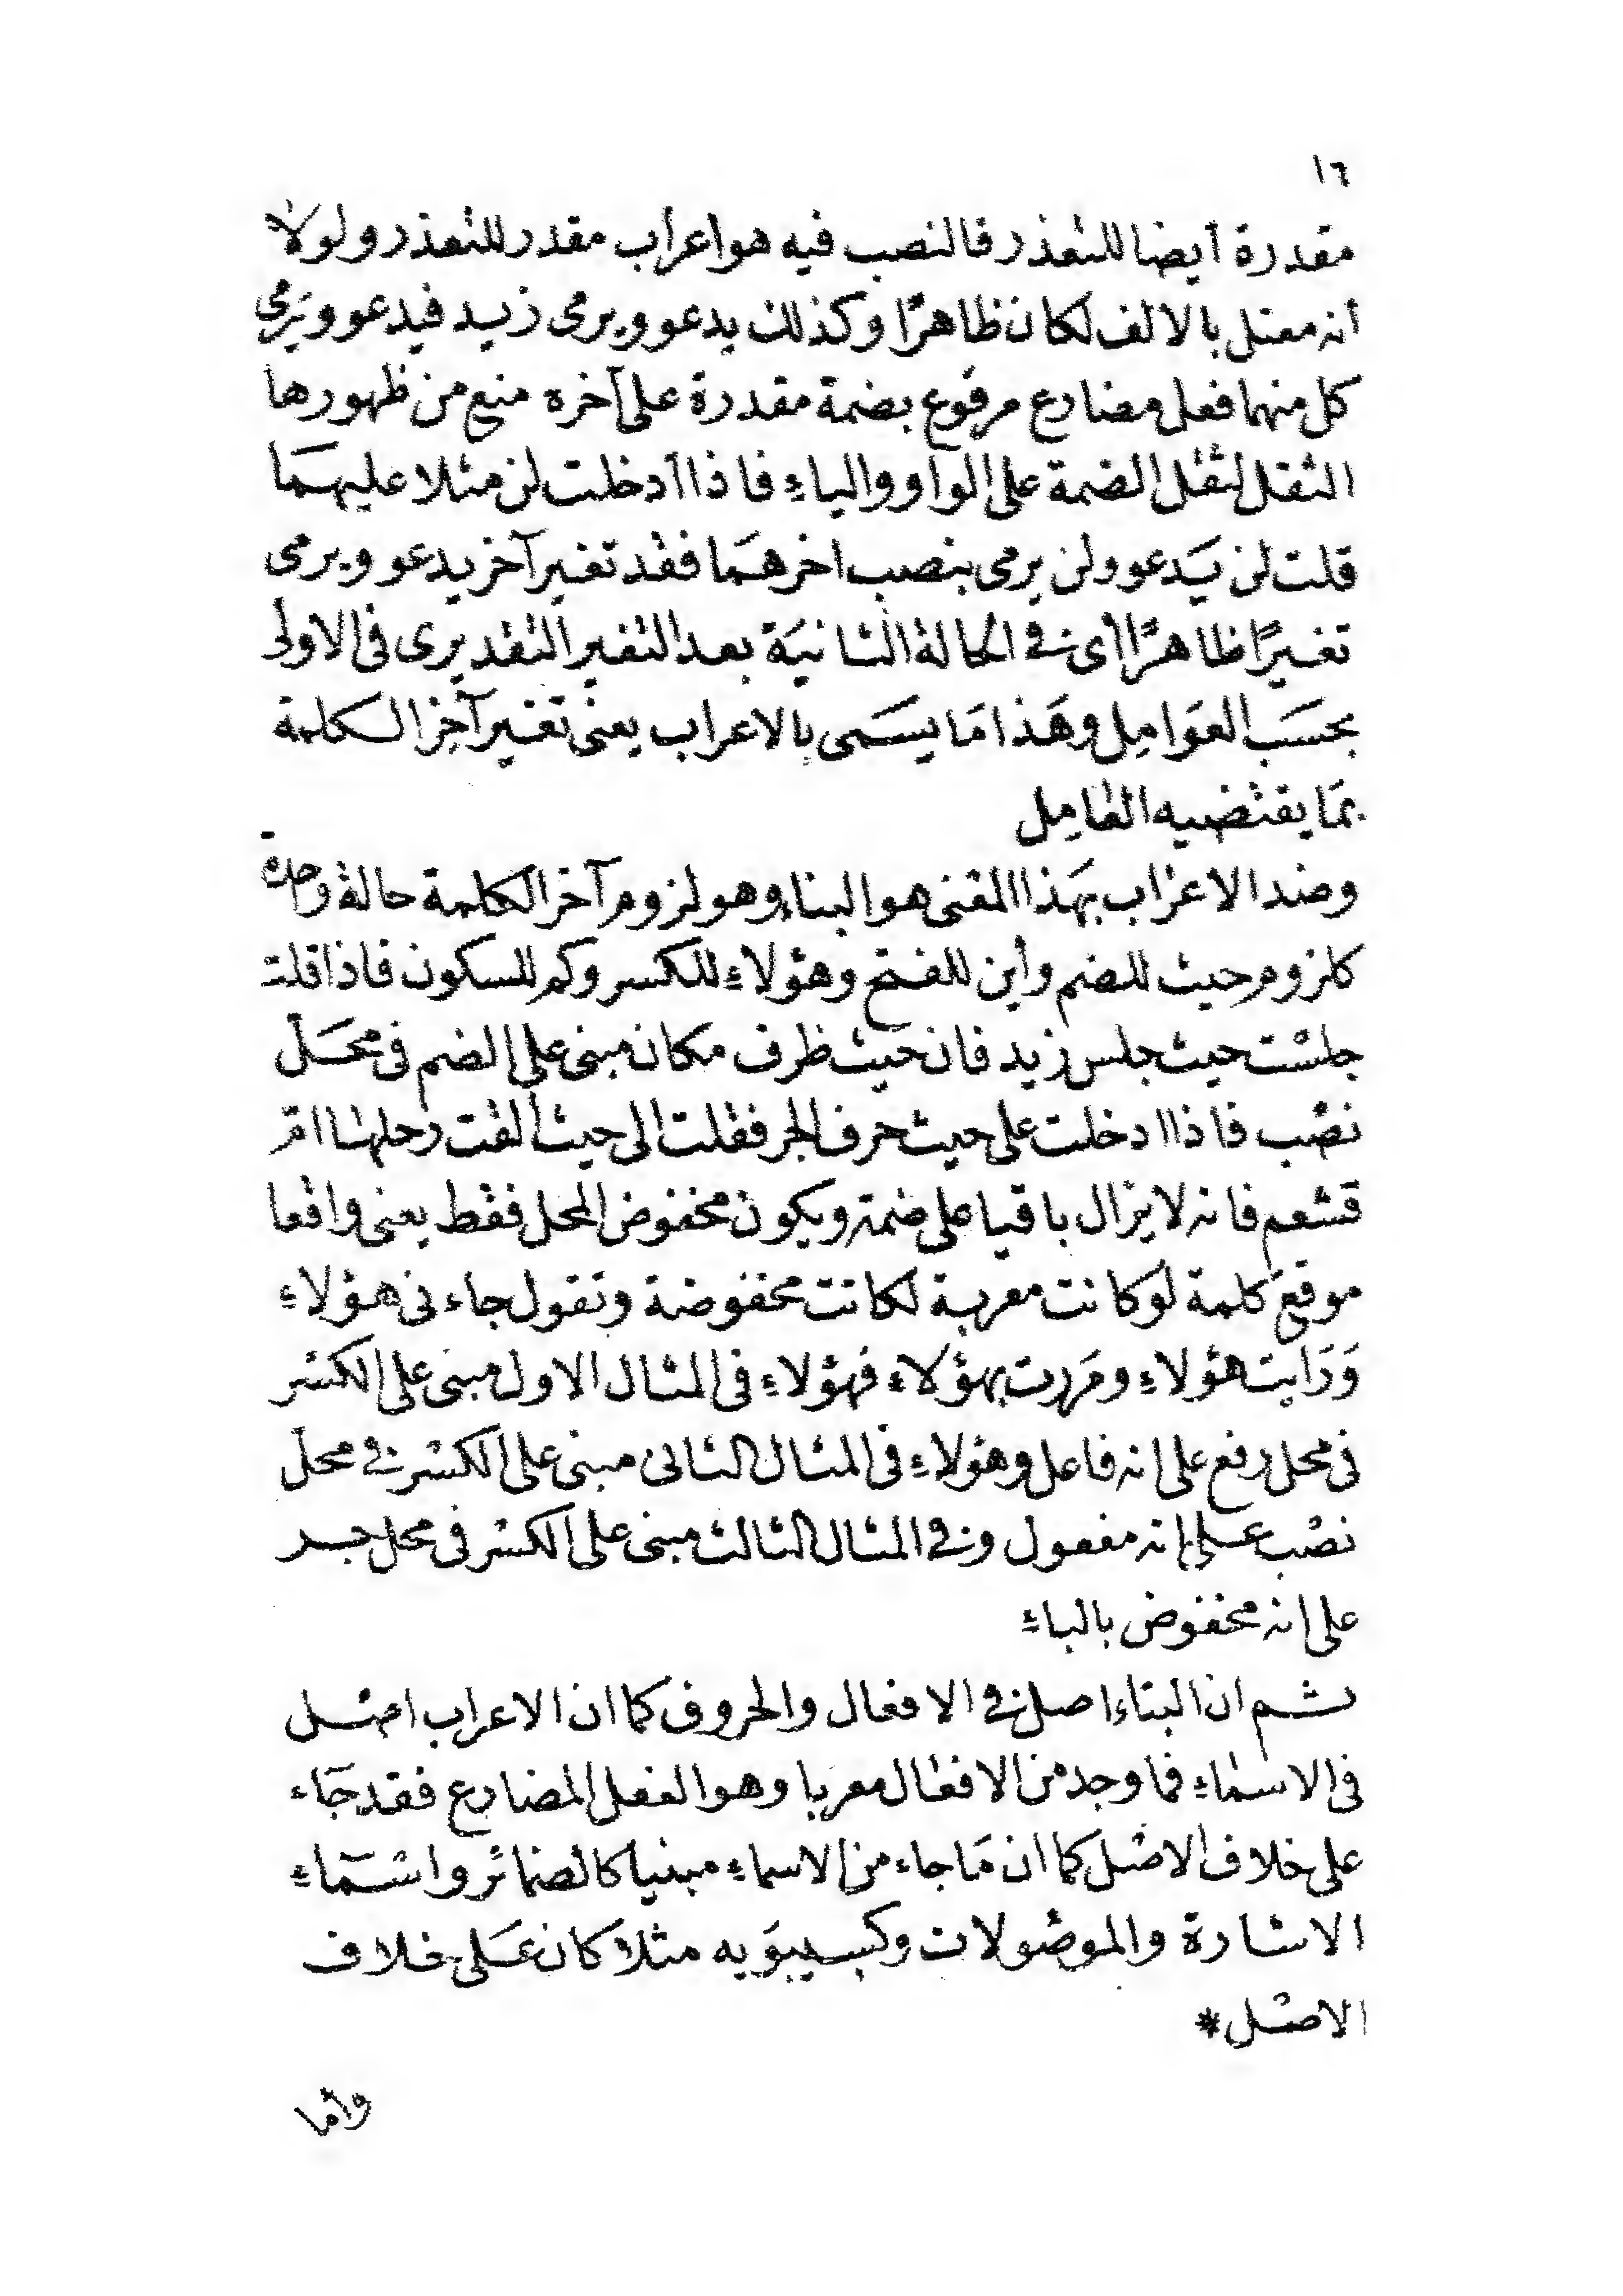 ١٦
مقدرة أيضا للتعذر فالنصب فيه هو اعراب مقدر للتعذر ولولا
أنه معتل بالالف لكان ظاهرًا وكذلك يدعو ويرمى زيد فيدعو ويَرمى
كل منهما فعل مضارع مرفوع بضمة مقدرة على آخره منع من ظهورها
الثقل لثقل الضمة على الواو والياءِ فاذا أدخلت لن مثلا عليهمَا
قلت لن يَدعو ولن يرمى بنصب اخرهمَا فقد تغير آخر يدعو ويرمى
تغييرًا ظاهرًا أى فى الحالة الثانيَة بعد التغير التقديرى فى الاولى
بحسَب العوَامِل وهَذا مَا يسَمى بالاعراب يعنى تغيير آخِر الكلمة
بمَا يقتضيه العامِل
وضد الاعراب بهَذا المعنى هو البناء وهو لزوم آخر الكلمة حالة واحدة
كلزوم حيث للضم وأين للفتح وهؤلاءِ للكسر وكم للسكون فاذا قلت
جلست حيث جلس زيد فان حيث ظرف مكان مبنى على الضم فى محَل
نصب فاذا ادخلت على حيث حرف الجر فقلت الى حيث ألقت رحلها امّ
قشعم فانه لا يزال باقيا على ضمته ويكون مخفوض المحل فقط يعنى واقعا
موقع كلمة لو كانت معربة لكانت مخفوضة وتقول جاءنى هؤلاءِ
وَرَايت هؤلاءِ ومَررت بهؤلاء فهؤلاءِ فى المثال الاول مبنى على الكسر
فى محل رفع على انه فاعل وهؤلاءِ فى المثال الثانى مبنى على الكسر فى محل
نصب على إنه مفعول وفى المثال الثالث مبنى على الكسر فى محل جر
على انه مخفوض بالباءِ
ثم ان البناء اصل فى الافعال والحروف كما ان الاعراب اصل
فى الاسماءِ فما وجد من الافعال معربا وهو الفعل المضارع فقد جَاء
على خلاف الاصل كما ان مَا جاء من الاسماءِ مبنيا كالضمائر واسمَاءِ
الاشارة والموصولات وكسيبوَيه مثلا كان عَلى خلاف
الاصل*
وأما